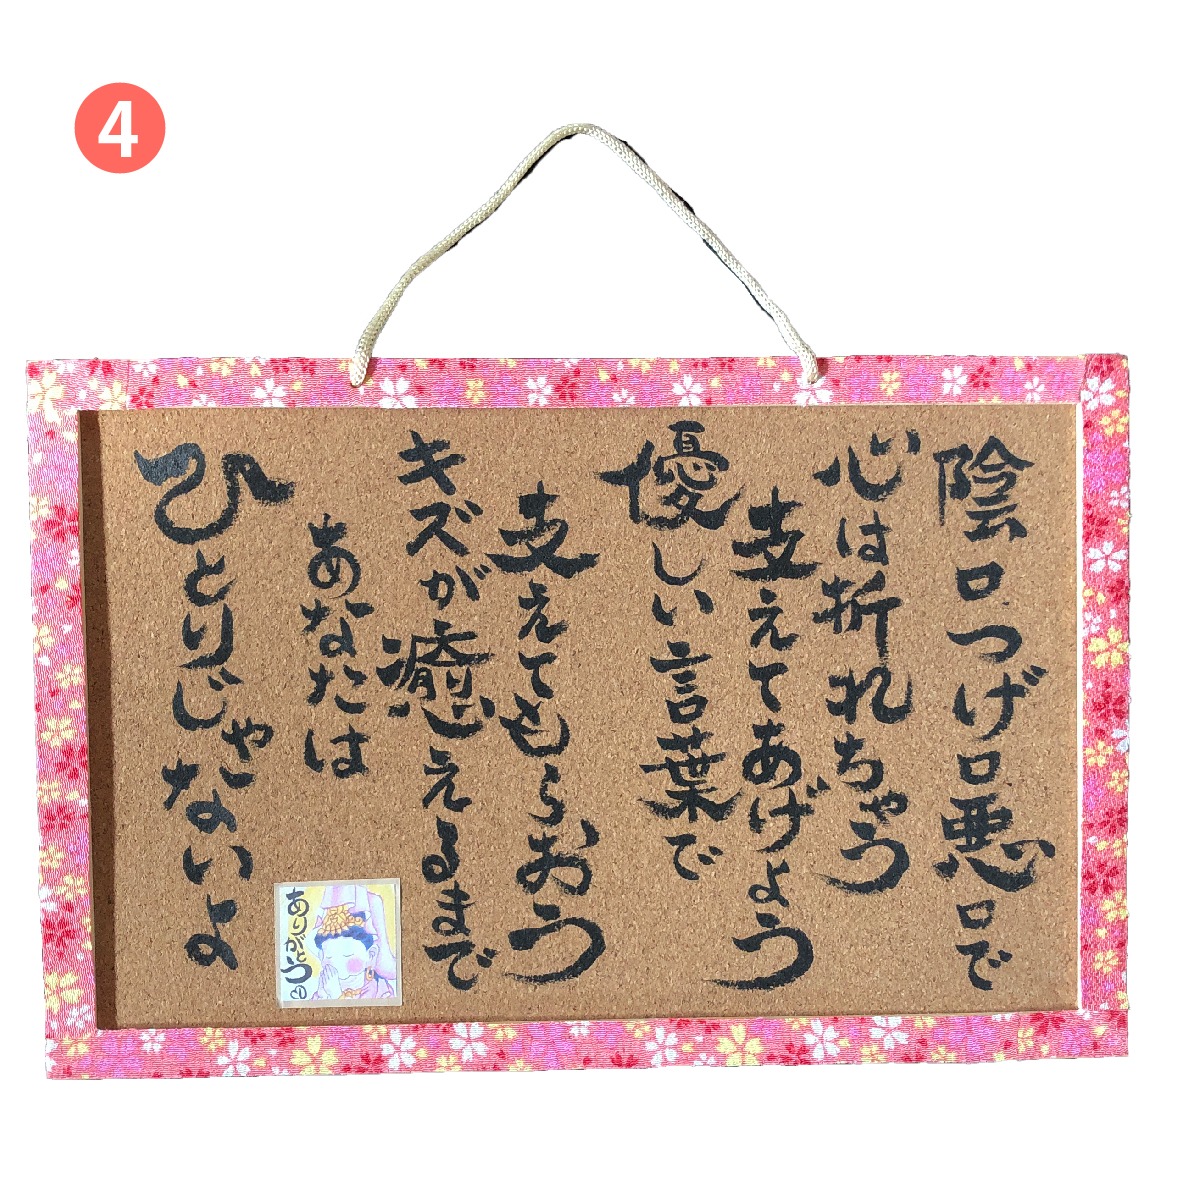 4
陰口つげ口悪口で
心は折れちゃう
支えてあげよう
優しい言葉で
支えてもらおう
キズが癒えるまで
あなたは
ひとりじゃないよ
ありがとう